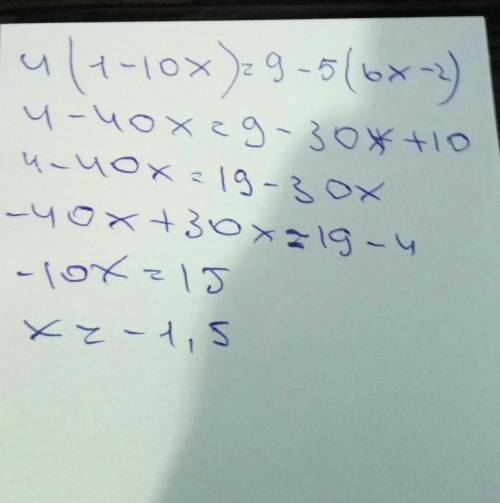 4(1-10x)=9-5(6x-2)
4-40x=9-30x+10
4-40x=19-30x
-40x+30x=19-4
-10x=15
x=-1,5